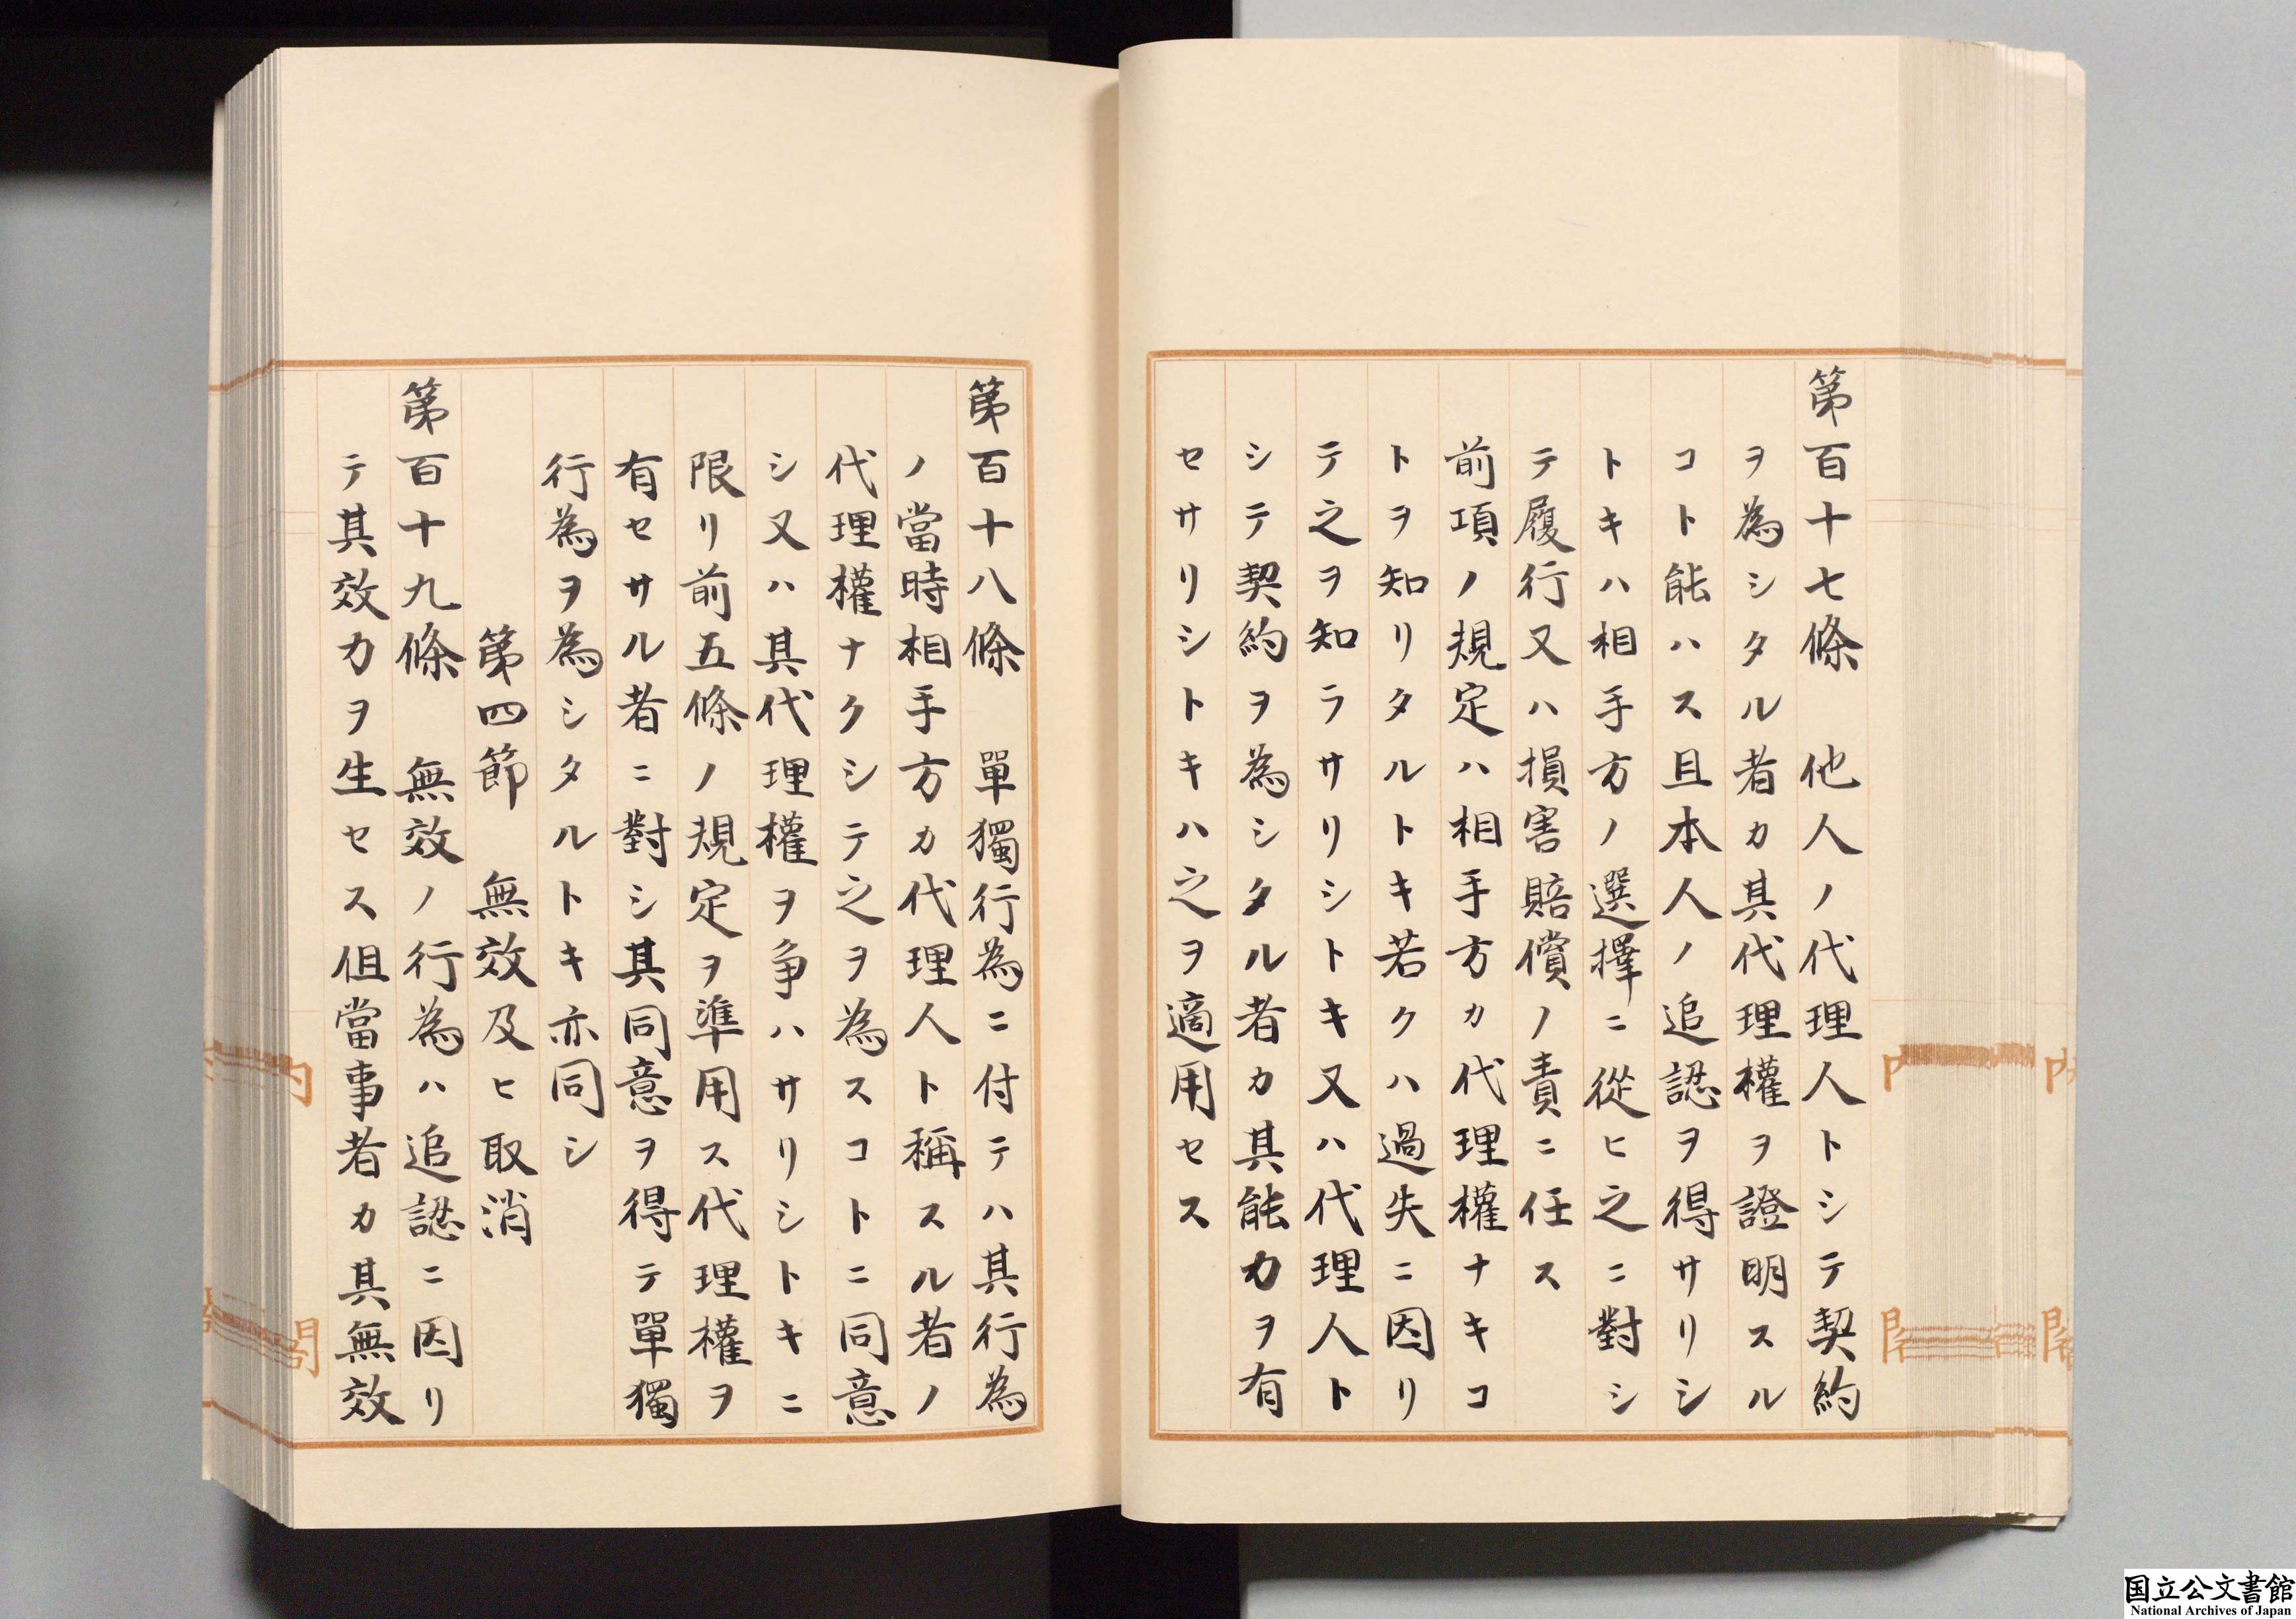 第百十七條　他人ノ代理人トシテ契約
ヲ為シタル者カ其代理權ヲ證明スル
コト能ハス且本人ノ追認ヲ得サリシ
トキハ相手方ノ選擇ニ從ヒ之ニ對シ
テ履行又ハ損害賠償ノ責ニ任ス
前項ノ規定ハ相手方カ代理權ナキコ
トヲ知リタルトキ若クハ過失ニ因リ
テ之ヲ知ラサリシトキ又ハ代理人ト
シテ契約ヲ為シタル者カ其能力ヲ有
セサリシトキハ之ヲ適用セス
第百十八條　單獨行為ニ付テハ其行為
ノ當時相手方カ代理人ト稱スル者ノ
代理權ナクシテ之ヲ為スコトニ同意
シ又ハ其代理權ヲ争ハサリシトキニ
限リ前五條ノ規定ヲ準用ス代理權ヲ
有セサル者ニ對シ其同意ヲ得テ單獨
行為ヲ為シタルトキ亦同シ
第四節　無效及ヒ取消
第百十九條　無效ノ行為ハ追認ニ因リ
テ其效力ヲ生セス但當事者カ其無效
国立公文書館
National Archives of Japan